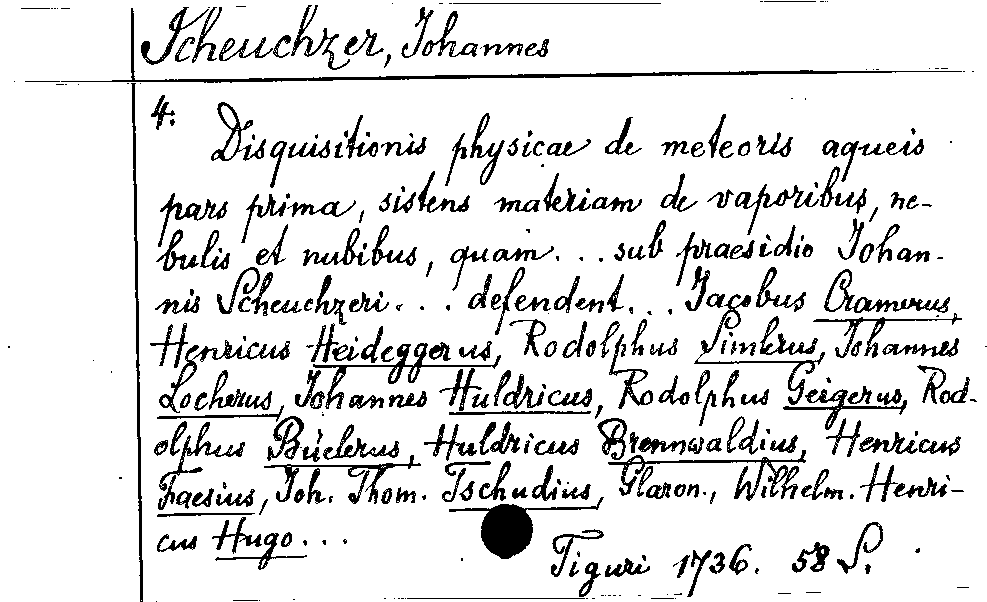 Scheuchzer, Johannes
4.
Disquisitionis physicae de meteoris aqueis
pars prima, sistens materiam de vaporibus, ne-
bulis et nubibus, quam... sub praesidio Johan-
nis Scheuchzeri... defendent... Jacobus Cramerus,
Henricus Heideggerus, Rodolphus Simlerus, Johannes
Locherus, Johannes Huldricus, Rodolphus Geigerus, Rod-
olphus Büelerus, Huldricus Brennwaldius, Henricus
Faesius, Joh. Thom. Tschudius, Glaron., Wilhelm. Henri-
cus Hugo...
Tiguri 1736. 58 S.